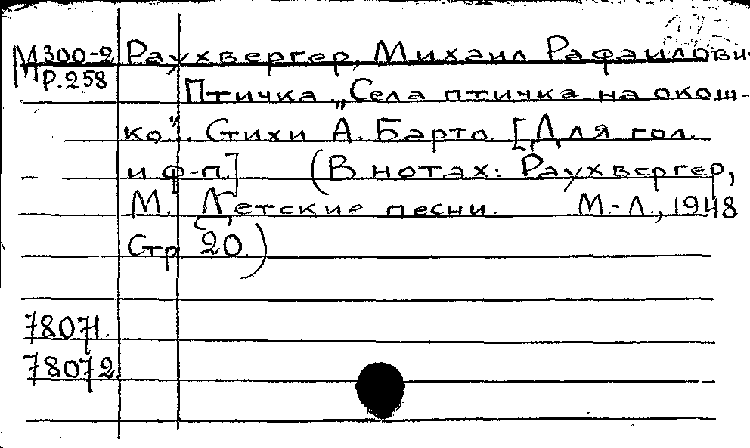 М300-2 Раухвергер, Михаил Рафаилови-
Р.258
Птичка „Села птичка на окош-
ко". Стихи А. Барто. [Для гол.
и ф-п.] (В нотах: Раухвергер,
М. Детские песни. М.-Л., 1948
Стр 20.)
78071.
78072